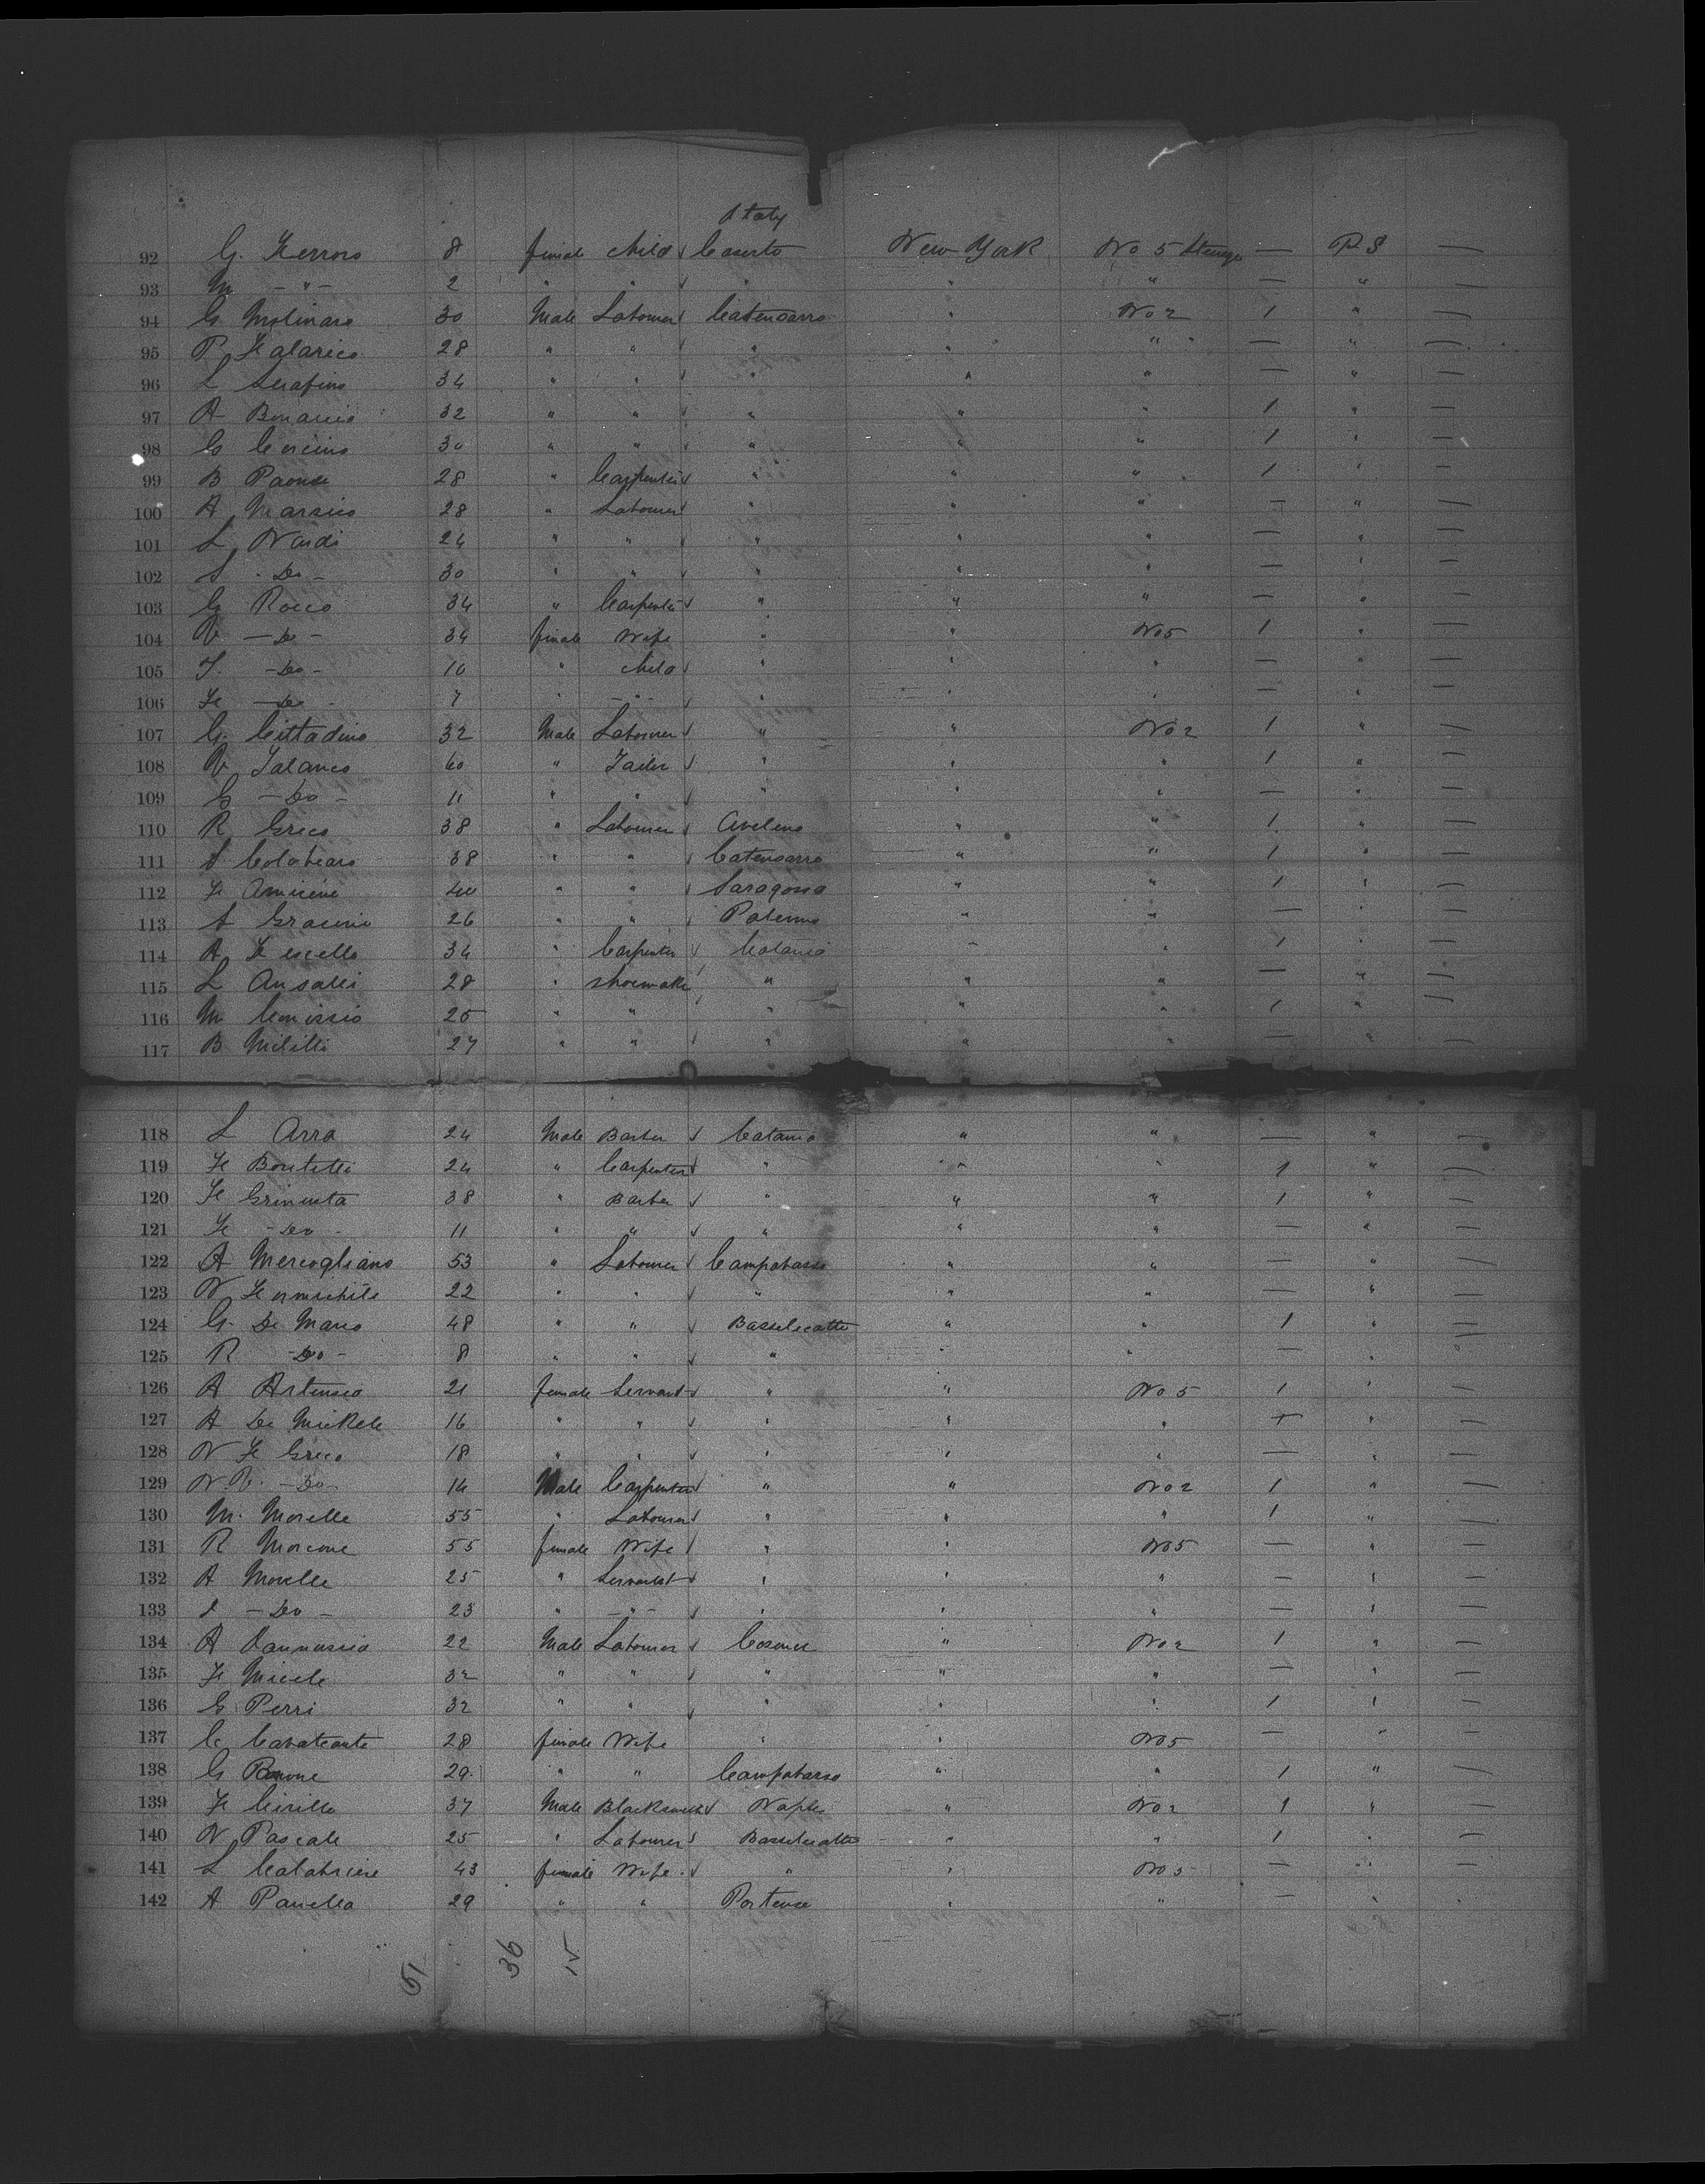 Italy
92 G. Ferraro 8 female child Caserta New York No 5 Steerage — P S —
93 M — " — 2 " " " " " — " —
94 G Molinaro 30 Male Labourer Catensarro " No 2 1 " —
95 P Falarico 28 " " " " " — " —
96 L Serafino 34 " " " " " — " —
97 A Bonaccio 32 " " " " " 1 " —
98 G 30 " " " " " 1 " —
99 B Paonde 28 " Carpenter " " " 1 " —
100 A Marsico 28 " Labourer " " " — " —
101 L Nardi 24 " " " " " — " —
102 S - Do - 30 " " " " " — " —
103 G Rocco 34 " Carpenter " " " — " —
104 V — Do — 34 female Wife " " No 5 1 " —
105 T. — Do — 10 " child " " " — " —
106 F — Do - 7 " — " — " " " — " —
107 G. Cittadino 32 Male Labourer " " No 2 1 " —
108 V Talarico 60 " Tailor " " " 1 " —
109 G — Do — 11 " " " " " — " —
110 R Greco 38 " Labourer Avelino " " 1 " —
111 S 38 " " Catensarro " " 1 " —
112 F 40 " " Saragosa " " 1 " —
113 S 26 " " Palermo " " — " —
114 A 34 " Carpenter Catania " " 1 " —
115 L Ansalli 28 " shoemake " " " — " —
116 M 25 " " " " " 1 " —
117 B Militti 27 " " " " " — " —
118 L Arra 24 Male Barber Catania " " — " —
119 F 24 " Carpenter " " " 1 " —
120 F 38 " Barber " " " 1 " —
121 F — Do — 11 " " " " " — " —
122 A Mercogliano 53 " Labourer Campobasso " " — " —
123 N 22 " " " " " — " —
124 G. De Mario 48 " " Basselicatte " " 1 " —
125 R — Do — 8 " " " " " — " —
126 A Artensia 21 female Servant " " No 5 1 " —
127 A De Mickele 16 " " " " " " —
128 N F Greco 18 " " " " " — " —
129 N. V. — Do — 14 Male Carpenter " " No 2 1 " —
130 M. Morelle 55 " Labourer " " " 1 " —
131 R Morcone 55 female Wife " " No 5 — " —
132 A Morelle 25 " Servant " " " — " —
133 I — Do — 23 " — " — " " " — " —
134 A 22 Male Labourer Cosence " No 2 1 " —
135 F Micele 32 " " " " " — " —
136 G Perri 32 " " " " " 1 " —
137 C 28 female Wife " " No 5 — " —
138 G 29 " " Campobasso " " 1 " —
139 F Cirillo 37 Male Blacksmith Naples " No 2 1 " —
140 N Pascale 25 " Labourer Basselicatte " " 1 " —
141 L Calabriese 43 female Wife " " No 5 — " —
142 A Panella 29 " " Portense " " — " -
51 36 15